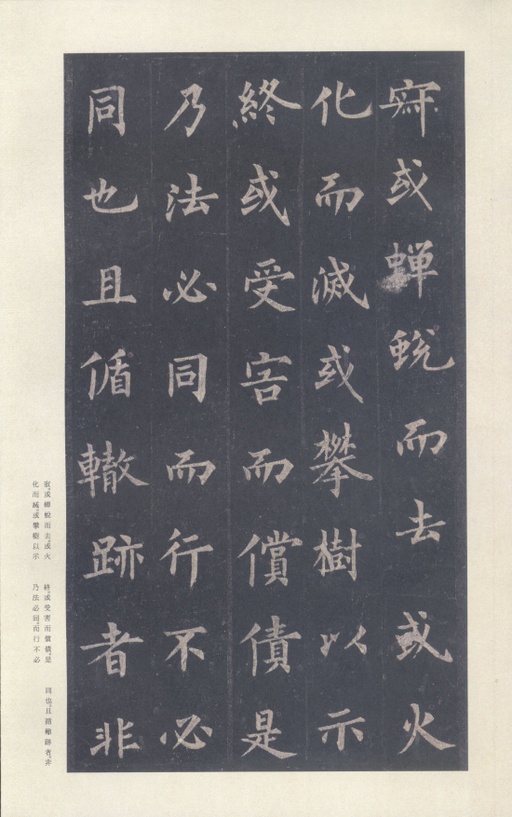 寂或蟬蛻而去或火
化而滅或攀樹以示
終或受害而償債是
乃法必同而行不必
同也且循轍跡者非
寂。或蟬蛻而去。或火
化而滅。或攀樹以示
終。或受害而償債。是
乃法必同。而行不必
同也。且循轍跡者。非